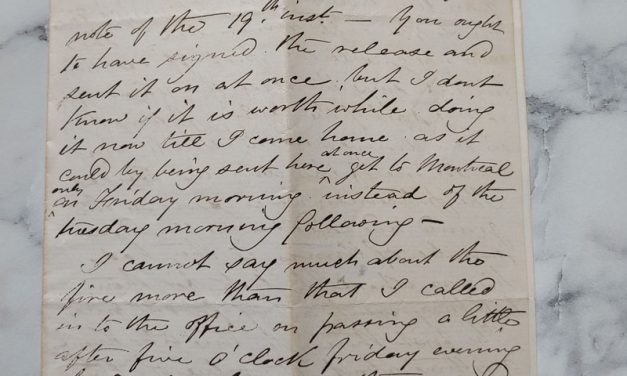 note of the 19th inst — You ought
to have signed the release and
sent it on at once, but I dont
know if it is worth while doing
it now till I come home as it
could by being sent here at once get to Montreal
only on Friday morning instead of the
tuesday morning following —
I cannot say much about the
fire more than that I called
in to the office on passing a little
after five o'clock friday evening